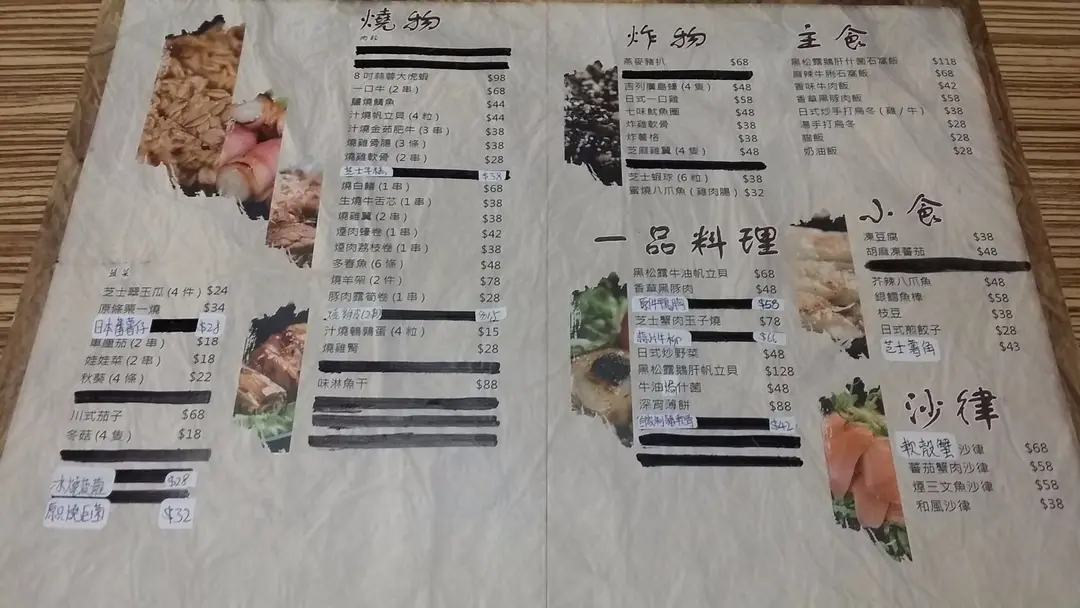 燒物
肉類
8吋蒜蓉大虎蝦 $98
一口牛(2串) $68
鹽燒鯖魚 $44
汁燒帆立貝(4粒) $44
汁燒金菇肥牛(3串) $38
燒雞骨腸(3條) $38
燒雞軟骨(2串) $28
$38
燒白鱔(1串) $68
生燒牛舌芯(1串) $38
燒雞翼(2串) $38
煙肉蠔卷(1串) $42
煙肉荔枝卷(1串) $38
多春魚(6條) $48
燒羊架(2件) $78
豚肉露筍卷(1串) $28
$15
汁燒鵪鶉蛋(4粒) $15
燒雞腎 $28
味淋魚干 $88
蔬菜
芝士翠玉瓜(4件) $24
原條粟一燒 $34
日本蕃薯仔 $28
車厘茄(2串) $18
娃娃菜(2串) $18
秋葵(4條) $22
川式茄子 $68
冬菇(4隻) $18
$28
$32
炸物
燕麥豬扒 $68
吉列廣島蠔(4隻) $48
日式一口雞 $58
七味魷魚圈 $48
炸雞軟骨 $38
炸薯格 $38
芝麻雞翼(4隻) $48
芝士蝦球(6粒) $38
蜜燒八爪魚(雞肉腸) $32
一品料理
黑松露牛油帆立貝 $68
香草黑豚肉 $48
$58
芝士蟹肉玉子燒 $78
$66
日式炒野菜 $48
黑松露鵝肝帆立貝 $128
牛油焗什菌 $48
深宵薄餅 $88
$42
主食
黑松露鵝肝什菌石窩飯 $118
麻辣牛𦟌石窩飯 $68
香味牛肉飯 $42
香草黑豚肉飯 $58
日式炒手打烏冬(雞/牛) $38
湯手打烏冬 $28
貓飯 $28
奶油飯 $28
小食
凍豆腐 $38
胡麻凍蕃茄 $48
芥辣八爪魚 $48
銀鱈魚棒 $58
枝豆 $38
日式煎餃子 $28
芝士薯角 $43
沙律
軟殼蟹沙律 $68
蕃茄蟹肉沙律 $58
煙三文魚沙律 $58
和風沙律 $38